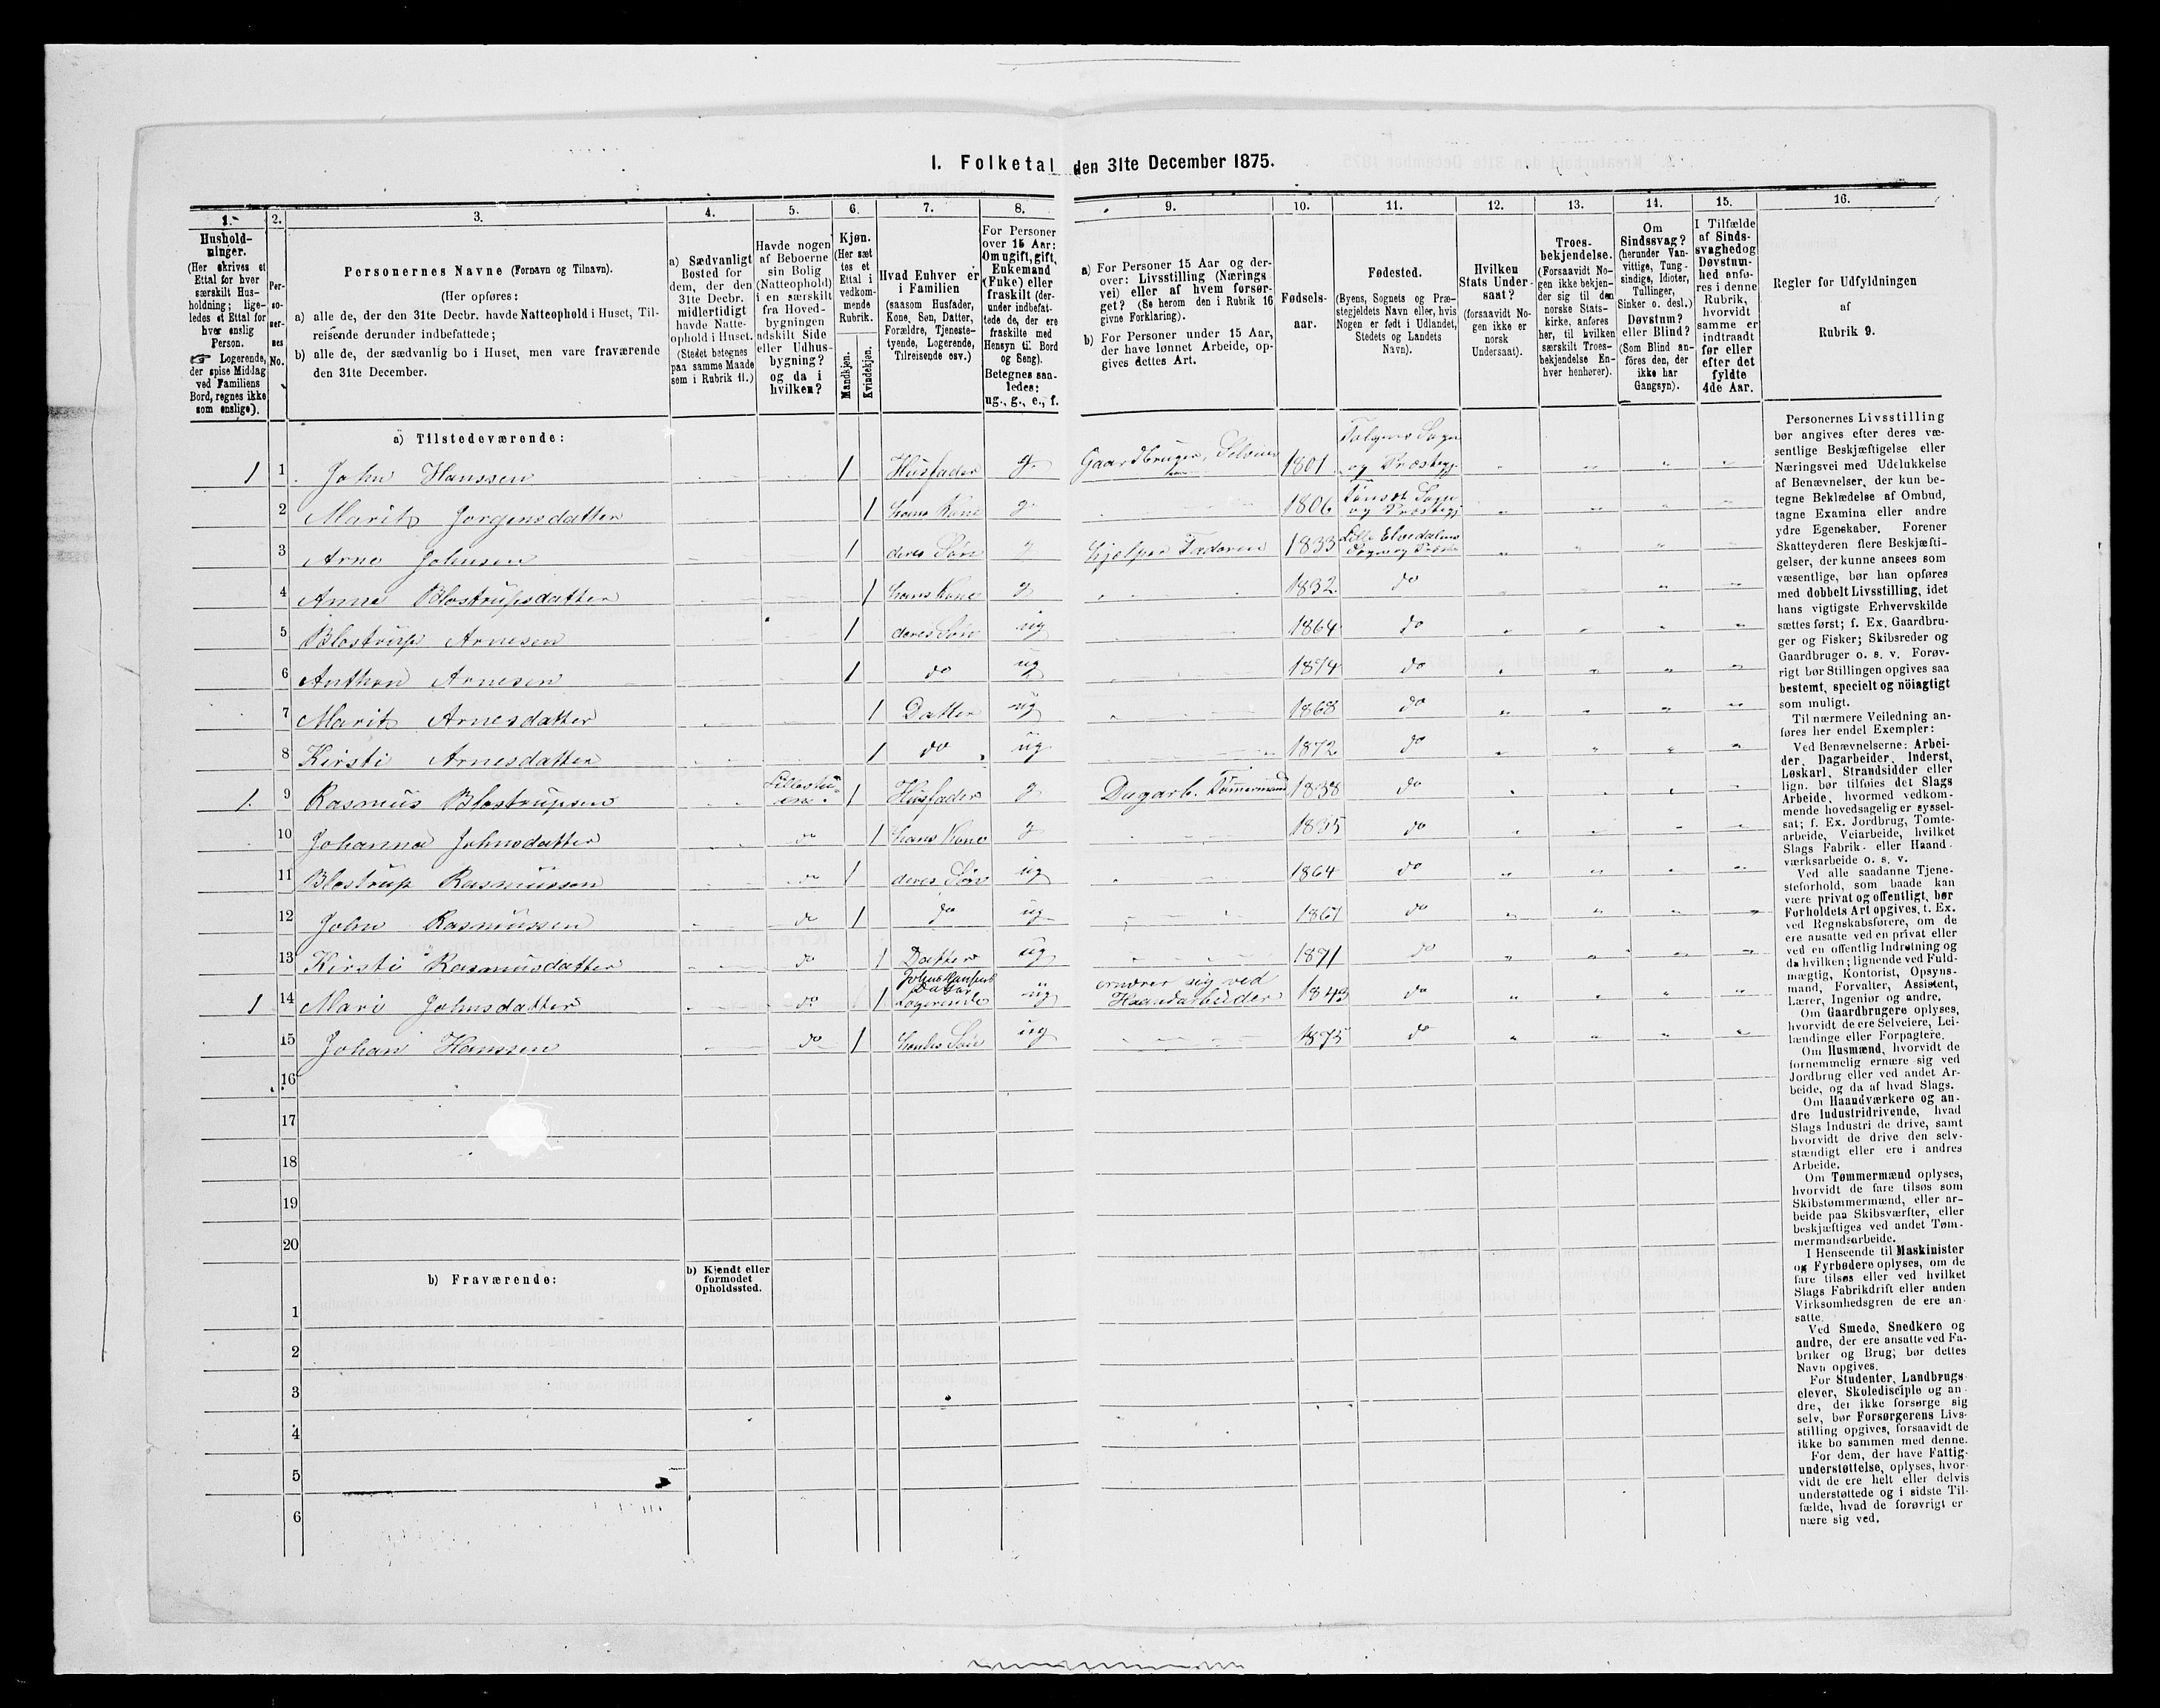 I. Folketal den 31te December 1875.
1.
Hushold-
ninger.
(Her skrives et
Ettal for hver
særskilt Hus-
holdning; lige-
ledes et Ettal for
hver enslig
Person.
☞ Logerende,
der spise Middag
ved Familiens
Bord, regnes ikke
som enslige).
2.
Per-
so-
ner-
nes
No.
3.
Personernes Navne (Fornavn og Tilnavn).
(Her opføres:
a) alle de, der den 31te Decbr. havde Natteophold i Huset, Til-
reisende derunder indbefattede;
b) alle de, der sædvanlig bo i Huset, men vare fraværende
den 31te December.
4.
a) Sædvanligt
Bosted for
dem, der den
31te Decbr.
midlertidigt
havde Natte-
ophold i Huset.
(Stedet betegnes
paa samme Maade
som i Rubrik 11.)
5.
Havde nogen
af Beboerne
sin Bolig
(Natteophold)
i en særskilt
fra Hoved-
bygningen
adskilt Side
eller Udhus-
bygning?
og da i
hvilken?
6.
Kjøn.
(Her sæt
tes et
Ettal i
vedkom-
mende
Rubrik.
Mandkjøn.
Kvindekjøn.
7.
Hvad Enhver er
i Familien
(saasom Husfader,
Kone, Søn, Datter,
Forældre, Tjeneste-
tyende, Logerende,
Tilreisende osv.)
8.
For Personer
over 15 Aar:
Om ugift, gift,
Enkemand
(Enke) eller
fraskilt (der-
under indbefat-
tede de, der ere
fraskilte med
Hensyn til Bord
og Seng).
Betegnes saa-
ledes:
ug., g., e., f.
9.
a) For Personer 15 Aar og der-
over: Livsstilling (Nærings
vei) eller af hvem forsør-
get? (Se herom den i Rubrik 16
givne Forklaring).
b) For Personer under 15 Aar,
der have lønnet Arbeide, op-
gives dettes Art.
10.
Fødsels-
aar.
11.
Fødested.
(Byens, Sognets og Præ-
stegjeldets Navn eller, hvis
Nogen er født i Udlandet,
Stedets og Landets
Navn).
12.
Hvilken
Stats Under-
saat?
(forsaavidt No-
gen ikke er
norsk
Undersaat).
13.
Troes-
bekjendelse.
(Forsaavidt No-
gen ikke bekjen-
der sig til den
norske Stats-
kirke, anføres
her, til hvilken
særskilt Troes-
bekjendelse En-
hver henhører).
14.
Om
Sindssvag?
(herunder Van-
vittige, Tung-
sindige, Idioter,
Tullinger,
Sinker o. desl.)
Døvstum?
eller Blind?
(Som Blind an-
føres den, der
ikke har
Gangsyn).
15.
I Tilfælde
af Sinds-
svaghed og
Døvstum-
hed anfø-
res i denne
Rubrik,
hvorvidt
samme er
indtraadt
før eller
efter det
fyldte
4de Aar.
16.
Regler for Udfyldningen
af
Rubrik 9.
a) Tilstedeværende:
1 1 John Hanssen 1 Husfader g Gaardbruger, Selveier 1801 Tolgens Sogn og Præstegj.
2 Marit Jorgensdatter 1 hans Kone g 1806 Tønset Sogn og Præstegj
3 Arne Johnsen 1 deres Søn g hjelper Faderen 1833 Lille Elvedalens Sogn og Præste
4 Anne Blostrupsdatter 1 hans Kone g 1832 do
5 Blostrup Arnesen 1 deres Søn ug 1864 do
6 Anthon Arnesen 1 do ug 1874 do
7 Marit Arnesdatter 1 Datter ug 1868 do
8 Kirsti Arnesdatter 1 do ug 1872 do
1 9 Rasmus Blostrupsen 1 Husfader g Dagarb. Tømmermand 1838 do
10 Johanna Johnsdatter do 1 hans Kone g 1835 do
11 Blostrup Rasmussen do 1 deres Søn ug 1864 do
12 John Rasmussen do 1 do ug 1867 do
13 Kirsti Rasmusdatter do 1 Datter ug 1871 do
1 14 Mari Johnsdatter do 1 John Hansens Datter Logerende ug ernærer sig ved Haandarbeider 1843 do
15 Johan Hanssen do 1 hendes Søn ug 1875 do
16
17
18
19
20
b) Fraværende:
b) Kjendt eller
formodet
Opholdssted.
1
2
3
4
5
6
Personernes Livsstilling
bør angives efter deres væ-
sentlige Beskjæftigelse eller
Næringsvei med Udelukkelse
af Benævnelser, der kun be-
tegne Beklædelse af Ombud,
tagne Examina eller andre
ydre Egenskaber. Forener
Skatteyderen flere Beskjæfti-
gelser, der kunne ansees som
væsentlige, bør han opføres
med dobbelt Livsstilling, idet
hans vigtigste Erhvervskilde
sættes først; f. Ex. Gaardbru-
ger og Fisker; Skibsreder og
Gaardbruger o. s. v. Forøv-
rigt bør Stillingen opgives saa
bestemt, specielt og nöiagtigt
som muligt.
Til nærmere Veiledning an-
føres her endel Exempler:
Ved Benævnelserne: Arbei-
der, Dagarbeider, Inderst,
Løskarl, Strandsidder eller
lign. bør tilføies det Slags
Arbeide, hvormed vedkom-
mende hovedsagelig er syssel-
sat; f. Ex. Jordbrug, Tomte-
arbeide, Veiarbeide, hvilket
Slags Fabrik- eller Haand-
værksarbeide o. s. v.
Ved alle saadanne Tjene-
steforhold, som baade kan
være privat og offentligt, bør
Forholdets Art opgives, t. Ex.
ved Regnskabsførere, om de
ere ansatte ved en privat eller
ved en offentlig Indretning og
da hvilken; lignende ved Fuld-
mægtig, Kontorist, Opsyns-
mand, Forvalter, Assistent,
Lærer, Ingeniør og andre.
Om Gaardbrugere oplyses,
hvorvidt de ere Selveiere, Lei-
lændinge eller Forpagtere.
Om Husmænd, hvorvidt de
fornemmelig ernære sig ved
Jordbrug eller ved andet Ar-
beide, og da af hvad Slags.
Om Haandværkere og an-
dre Industridrivende, hvad
Slags Industri de drive, samt
hvorvidt de drive den selv-
stændigt eller ere i andres
Arbeide.
Om Tømmermænd oplyses,
hvorvidt de fare tilsøs som
Skibstømmermænd, eller ar-
beide paa Skibsværfter, eller
beskjæftiges ved andet Tøm-
mermandsarbeide.
I Henseende til Maskinister
og Fyrbødere oplyses, om de
fare tilsøs eller ved hvilket
Slags Fabrikdrift eller anden
Virksomhedsgren de ere an-
satte.
Ved Smede, Snedkere og
andre, der ere ansatte ved Fa-
briker og Brug; bør dettes
Navn opgives.
For Studenter, Landbrugs-
elever, Skoledisciple og an-
dre, der ikke forsørge sig
selv, bør Forsørgerens Livs-
stilling opgives, forsaavidt de
ikke bo sammen med denne.
For dem, der have Fattig-
understøttelse, oplyses, hvor-
vidt de ere helt eller delvis
understøttede og i sidste Til-
fælde, hvad de forøvrigt er
nære sig ved.